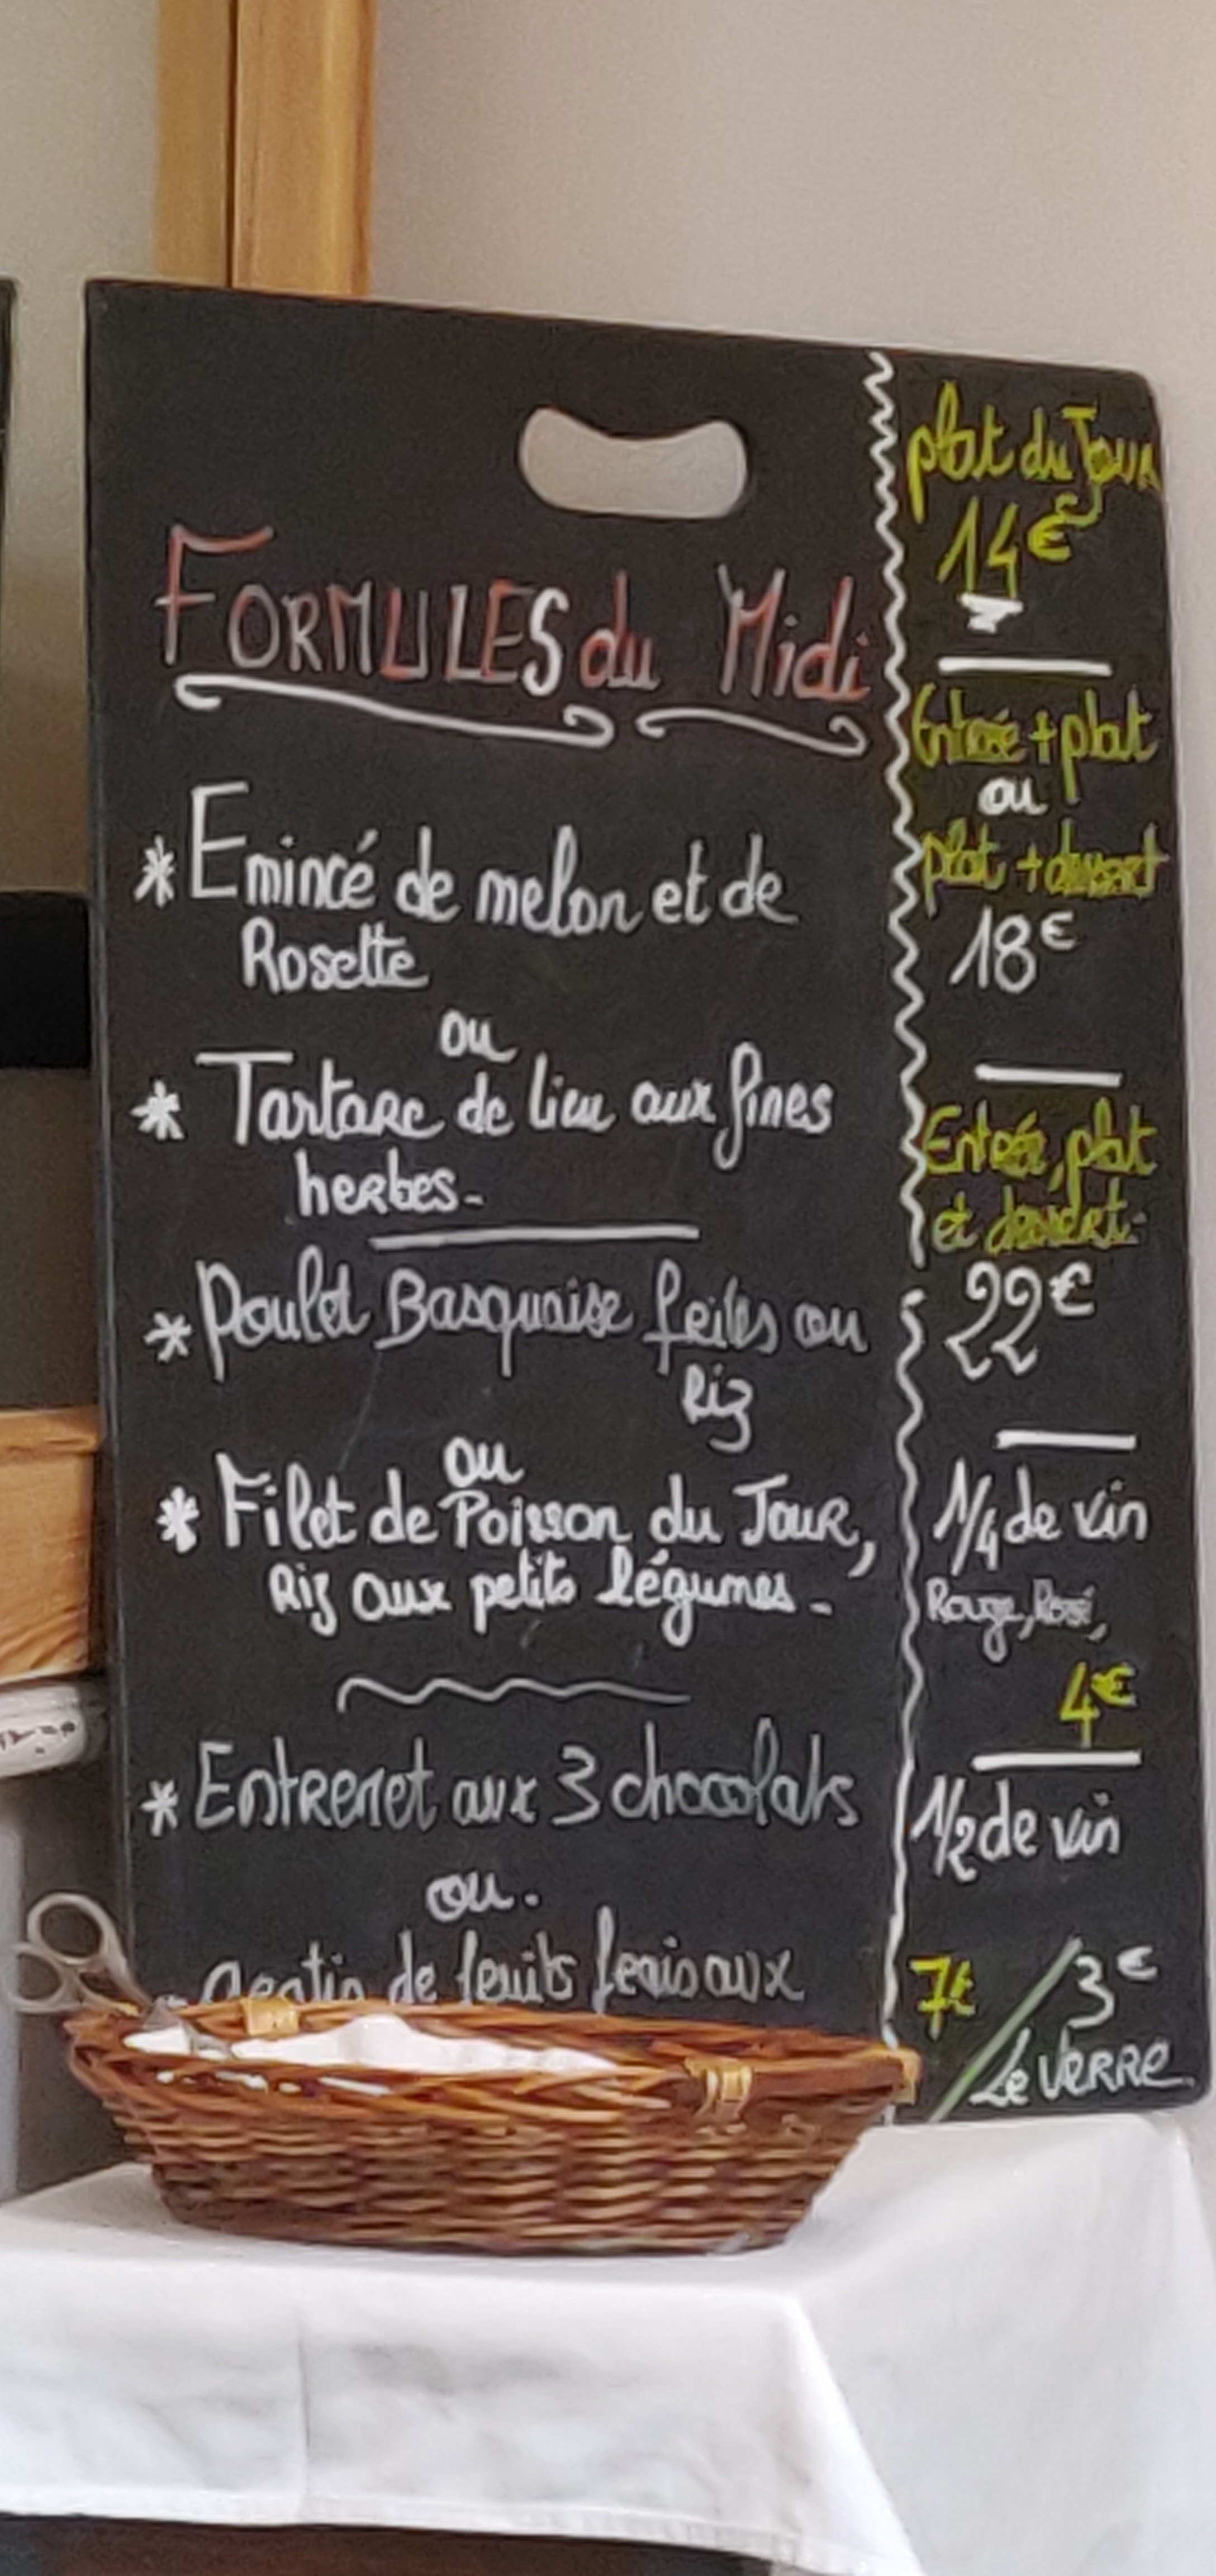 FORMULES du Midi
* Emincé de melon et de
Rosette
ou
* Tartare de lieu aux fines
herbes-
* Poulet Basquaise frites ou
Riz
ou
* Filet de Poisson du Jour,
Riz aux petits légumes-
* Entremet aux 3 chocolats
ou.
gratin de fruits frais aux
plat du Jour
14€
Entrée + plat
ou
plat + dessert
18€
Entrée, plat
et dessert-
22€
1/4 de vin
Rouge, Rosé,
4€
1/2 de vin
7€ / 3€
Le VERRE